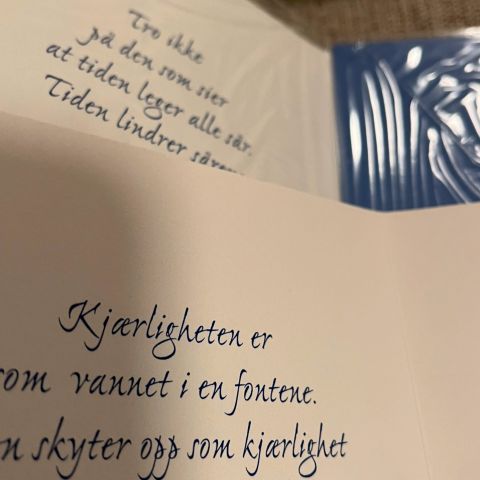 Tro ikke
på den som sier
at tiden leger alle sår.
Tiden lindrer
Kjærligheten er
vannet i en fontene.
skyter opp som kjærlighet